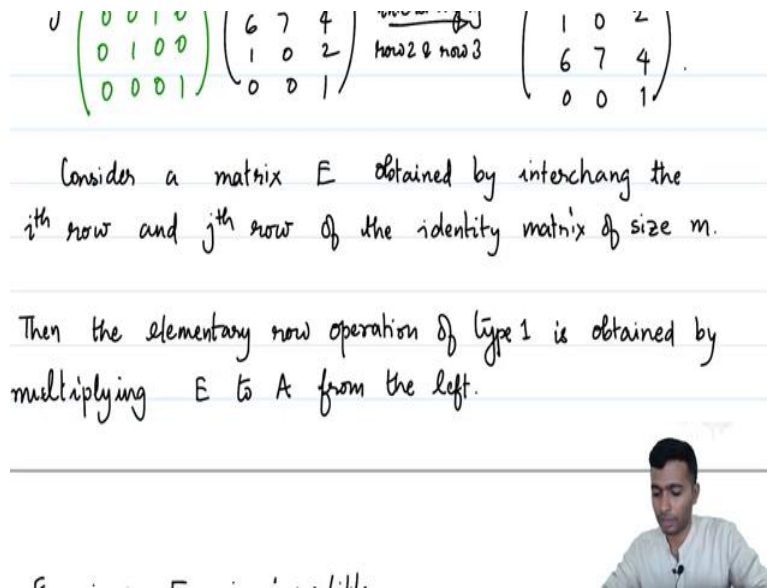 6 7 4
0 1 0 0 1 0 2 row 2 & row 3 6 7 4 .
0 0 0 1 0 0 1 0 0 1
Consider a matrix E obtained by interchang the
ith row and jth row of the identity matrix of size m.
Then the elementary row operation of type 1 is obtained by
multiplying E to A from the left.